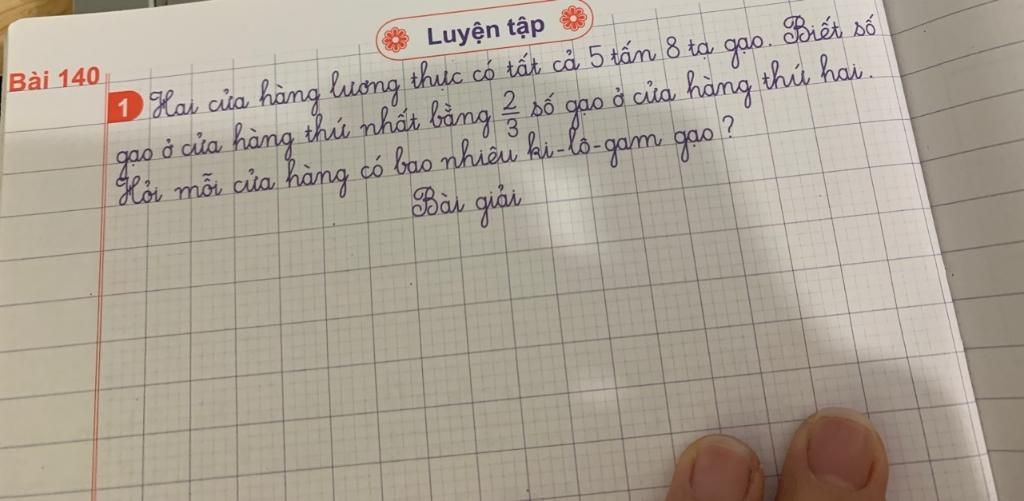 Luyện tập
Bài 140
1 Hai cửa hàng lương thực có tất cả 5 tấn 8 tạ gạo. Biết số
gạo ở cửa hàng thứ nhất bằng 2/3 số gạo ở cửa hàng thứ hai.
Hỏi mỗi cửa hàng có bao nhiêu ki-lô-gam gạo?
Bài giải